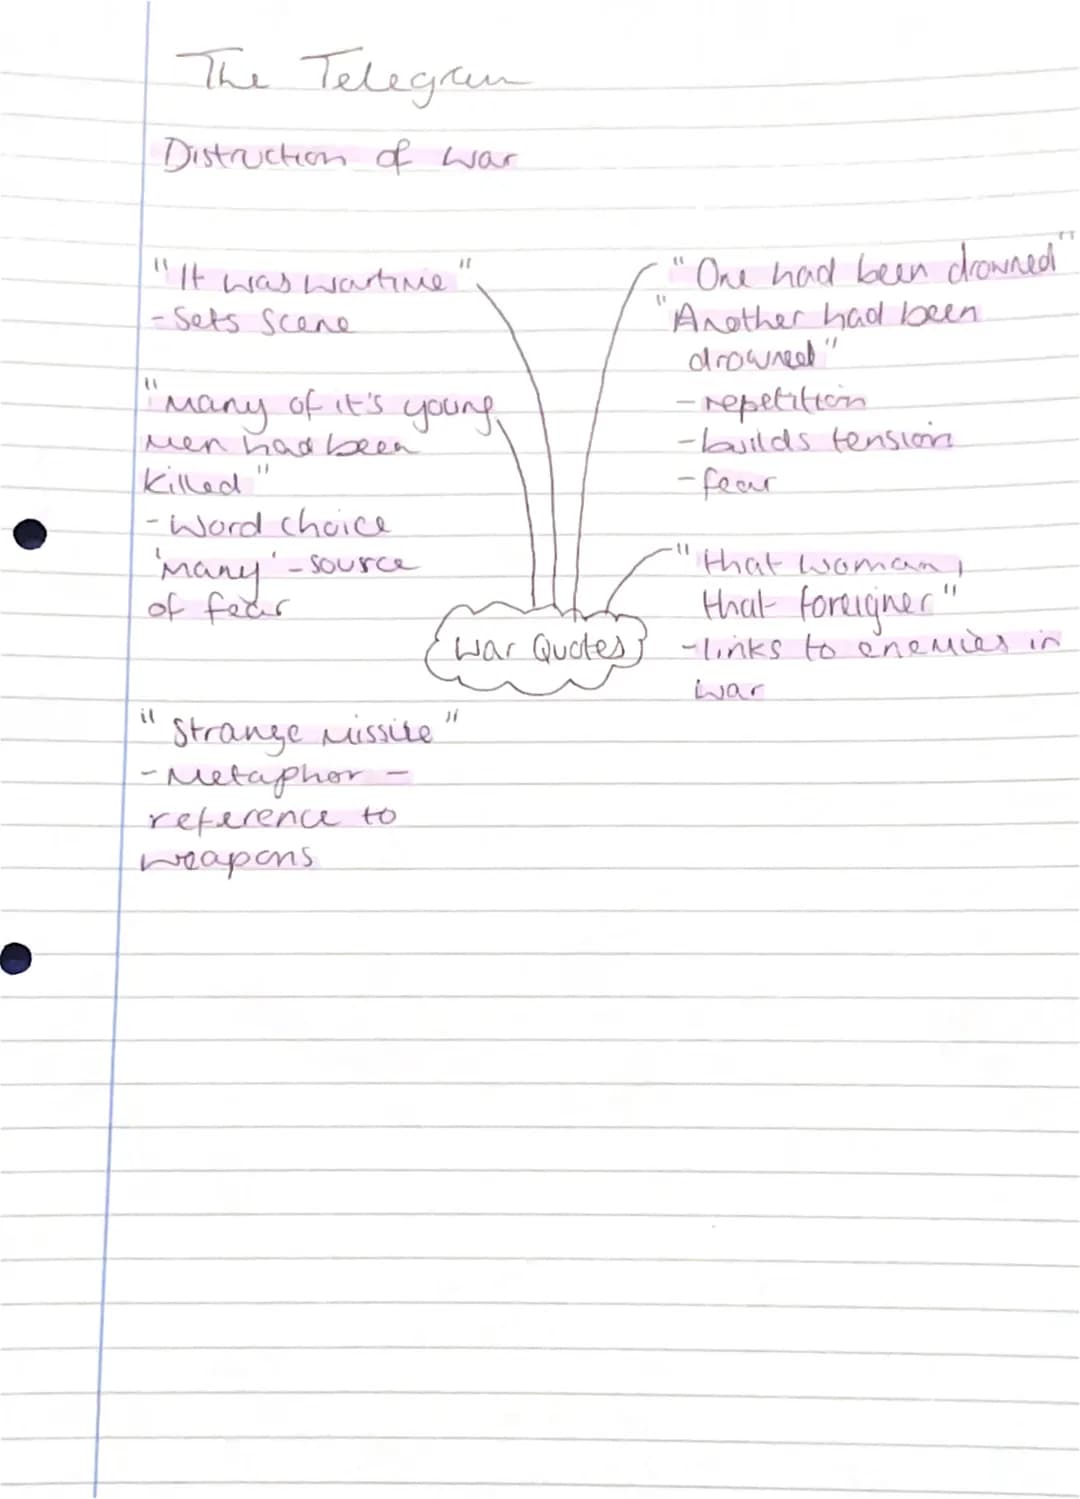 The Telegram
Distruction of war
"It was wartime"
- Sets Scene
"Many of it's young
men had been
killed"
- Word choice
'many' - source
of fear
"Strange missile"
- Metaphor -
reference to
weapons
"One had been drowned"
"Another had been
drowned"
- repetition
- builds tension
- fear
"that woman,
that foreigner"
- links to enemies in
war
War Quotes